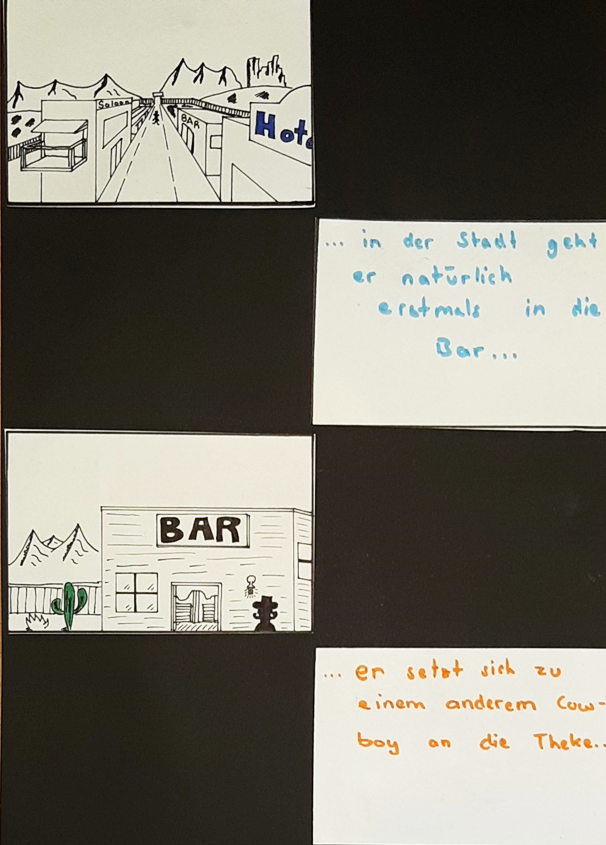 Saloon
BAR
Hot
... in der Stadt geht
er natürlich
erstmals in die
Bar...
BAR
... er setzt sich zu
einem anderem Cow-
boy an die Theke..